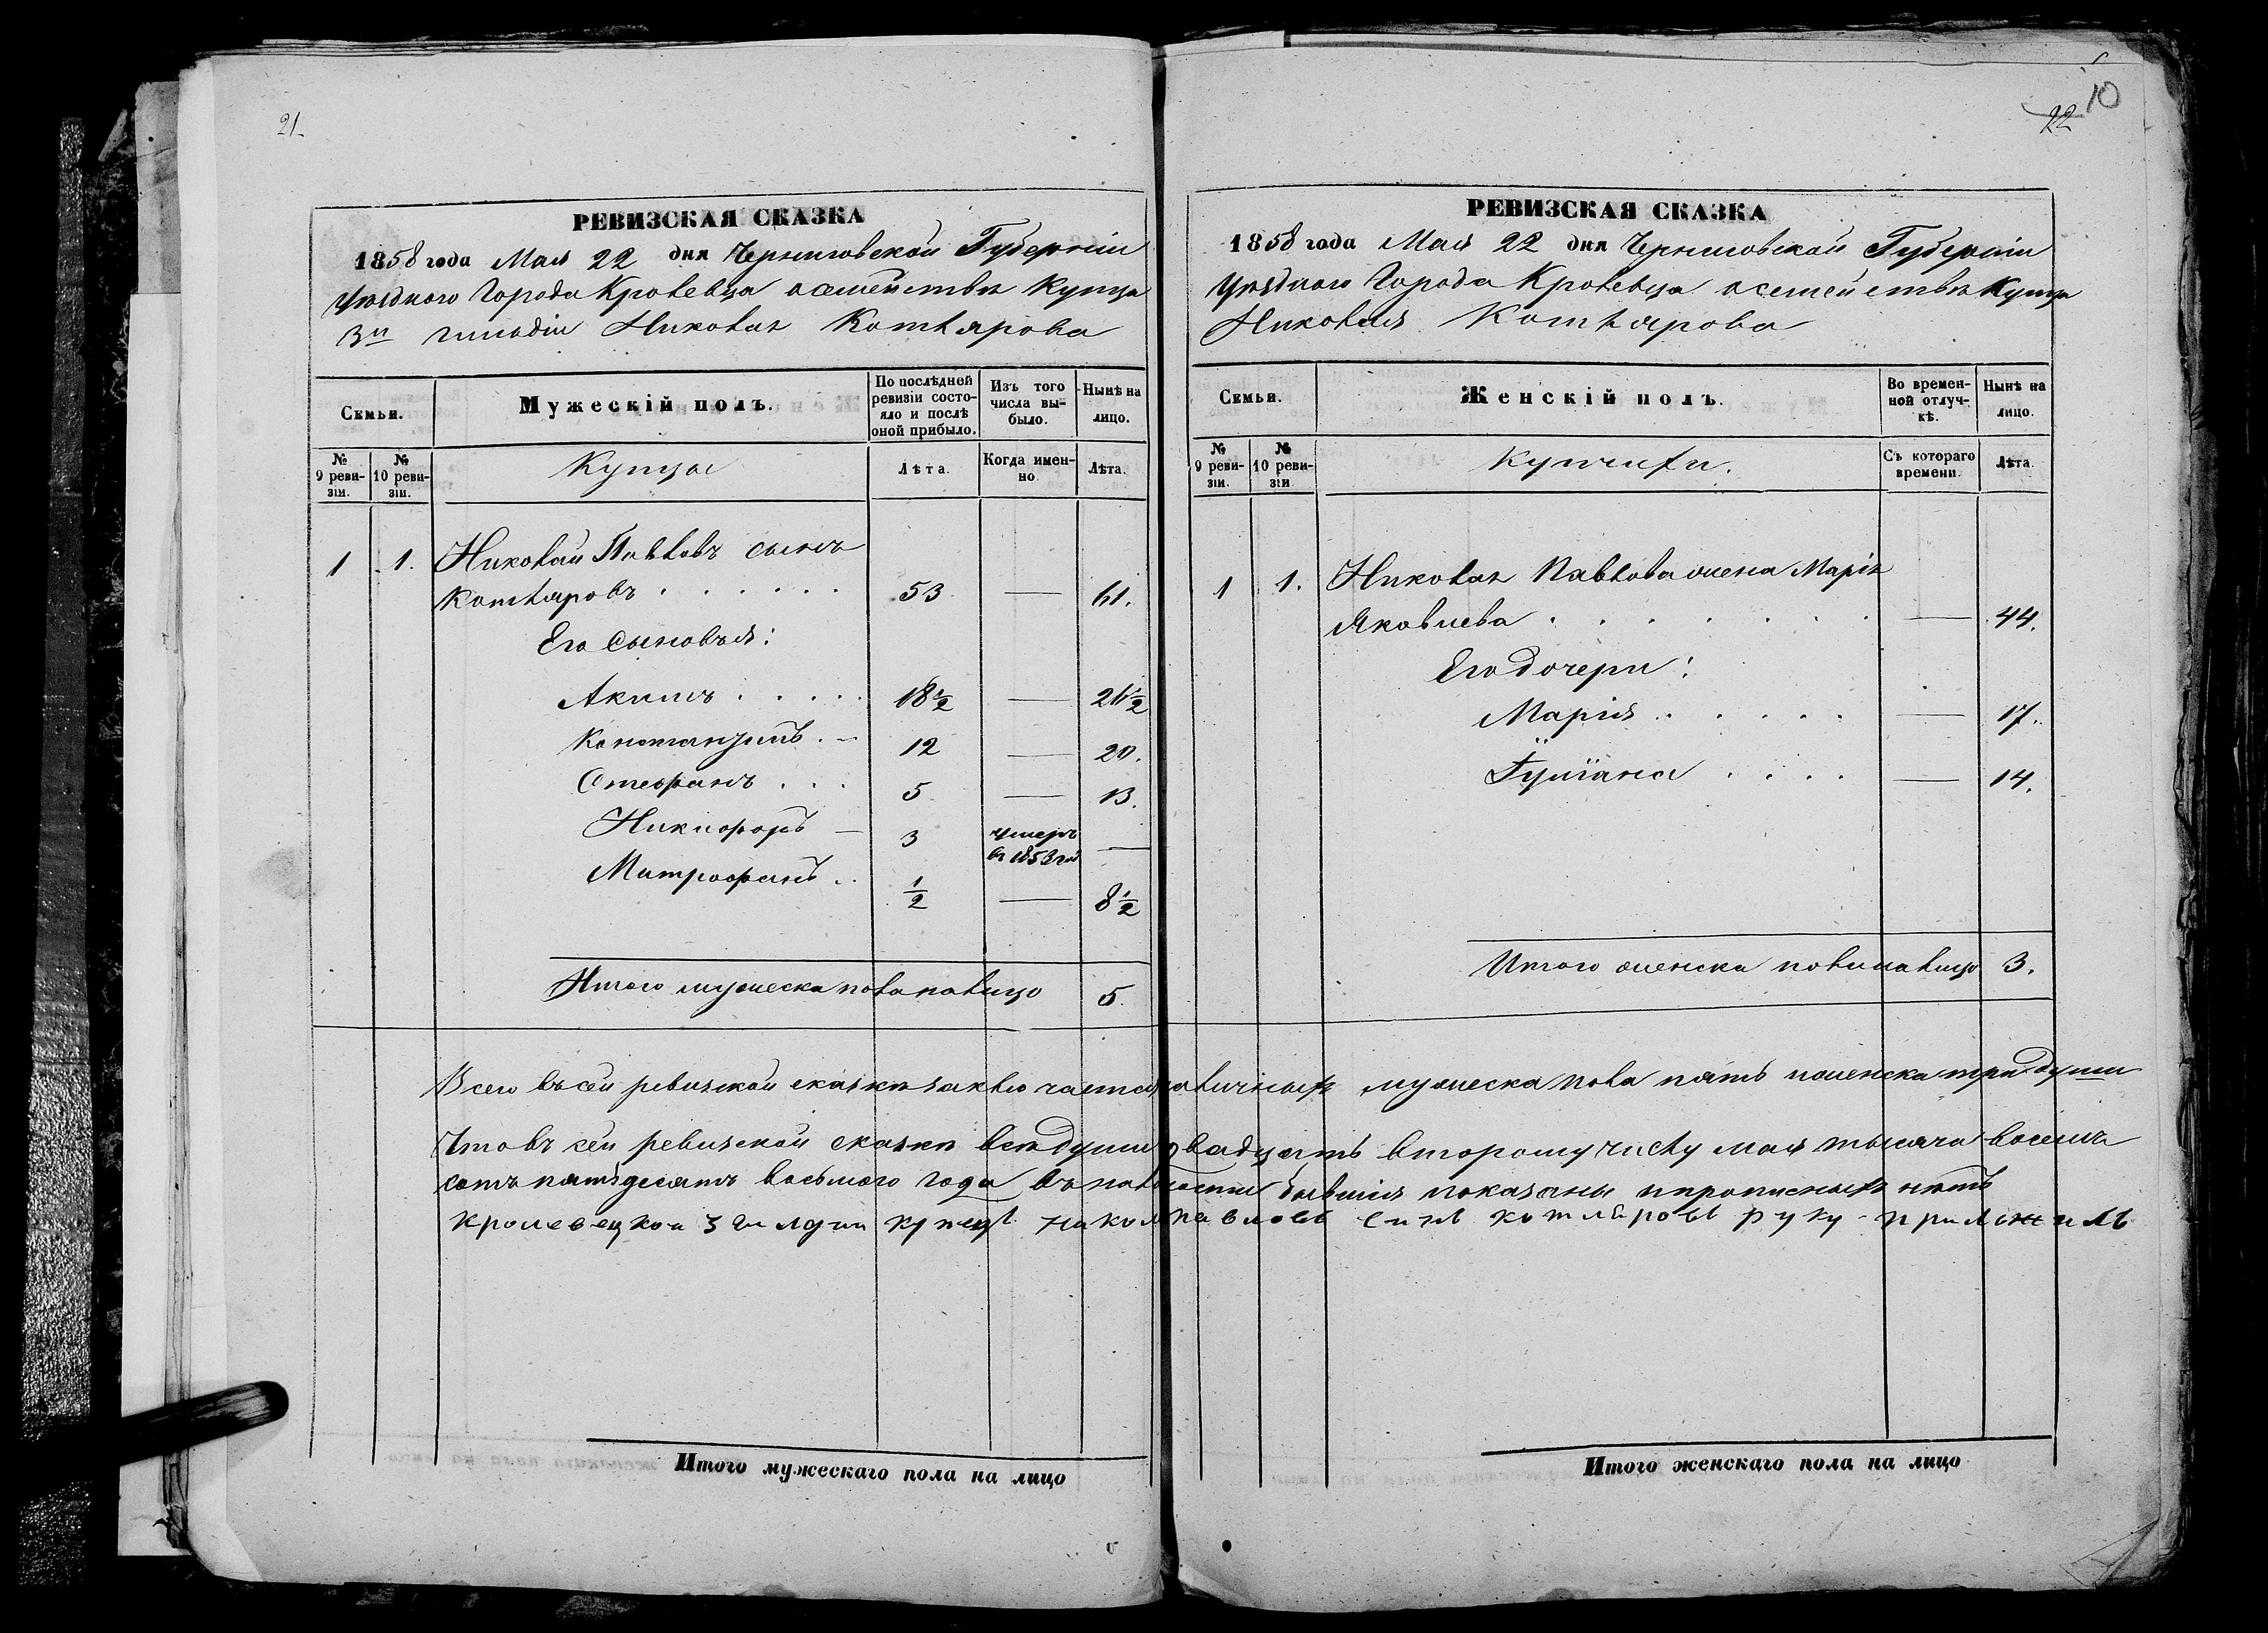 21
РЕВИЗСКАЯ СКАЗКА
1858 года Мая 22 дня Черниговской Губерніи
Уѣзднаго Города Кролевца о семействѣ Купца
3й гильдіи Николая Котлярова
Семьи.
Мужескій полъ.
По послѣдней ревизіи состояло и послѣ оной прибыло.
Изъ того числа выбыло.
Нынѣ на лицо.
№ 9 ревизіи.
№ 10 ревизіи.
Купцы
Лѣта.
Когда именно.
Лѣта.
1 1. Николай Павловъ сынъ
Котляровъ . . . . . . 53 — 61.
Его сыновья:
Акимъ . . . . . 18 1/2 — 26 1/2
Константинъ . – 12 — 20.
Стефанъ . . . 5 — 13.
Никифоръ – 3 умеръ в 1853 год —
Митрофанъ . . 1/2 — 8 1/2
Итого мужеска пола налицо 5.
Итого мужескаго пола на лицо
22 10
РЕВИЗСКАЯ СКАЗКА
1858 года Мая 22 дня Черниговской Губерніи
Уѣзднаго Города Кролевца о семействѣ Купца
Николая Котлярова
Семьи.
Женскій полъ.
Во временной отлучкѣ.
Нынѣ на лицо.
№ 9 ревизіи.
№ 10 ревизіи
Купчихи.
Съ котораго времени.
Лѣта.
1 1. Николая Павлова жена Марія
Яковлева . . . . . . . — 44.
Его дочери:
Марія . . . . . — 17.
Іуліана . . . . — 14.
Итого женска пола налицо 3.
Всего въ сей ревизской сказкѣ заключается наличныхъ мужеска пола пять и женска три души
Что въ сей ревизской сказкѣ всѣ души двадцать второму числу мая тысяча восемъ
сотъ пятьдесятъ восьмого года въ наличности бывшія показаны и прописныхъ нѣтъ
кролевецкой 3 гилдии купецъ николай павловъ синъ котляровъ руку приложилъ
Итого женскаго пола на лицо